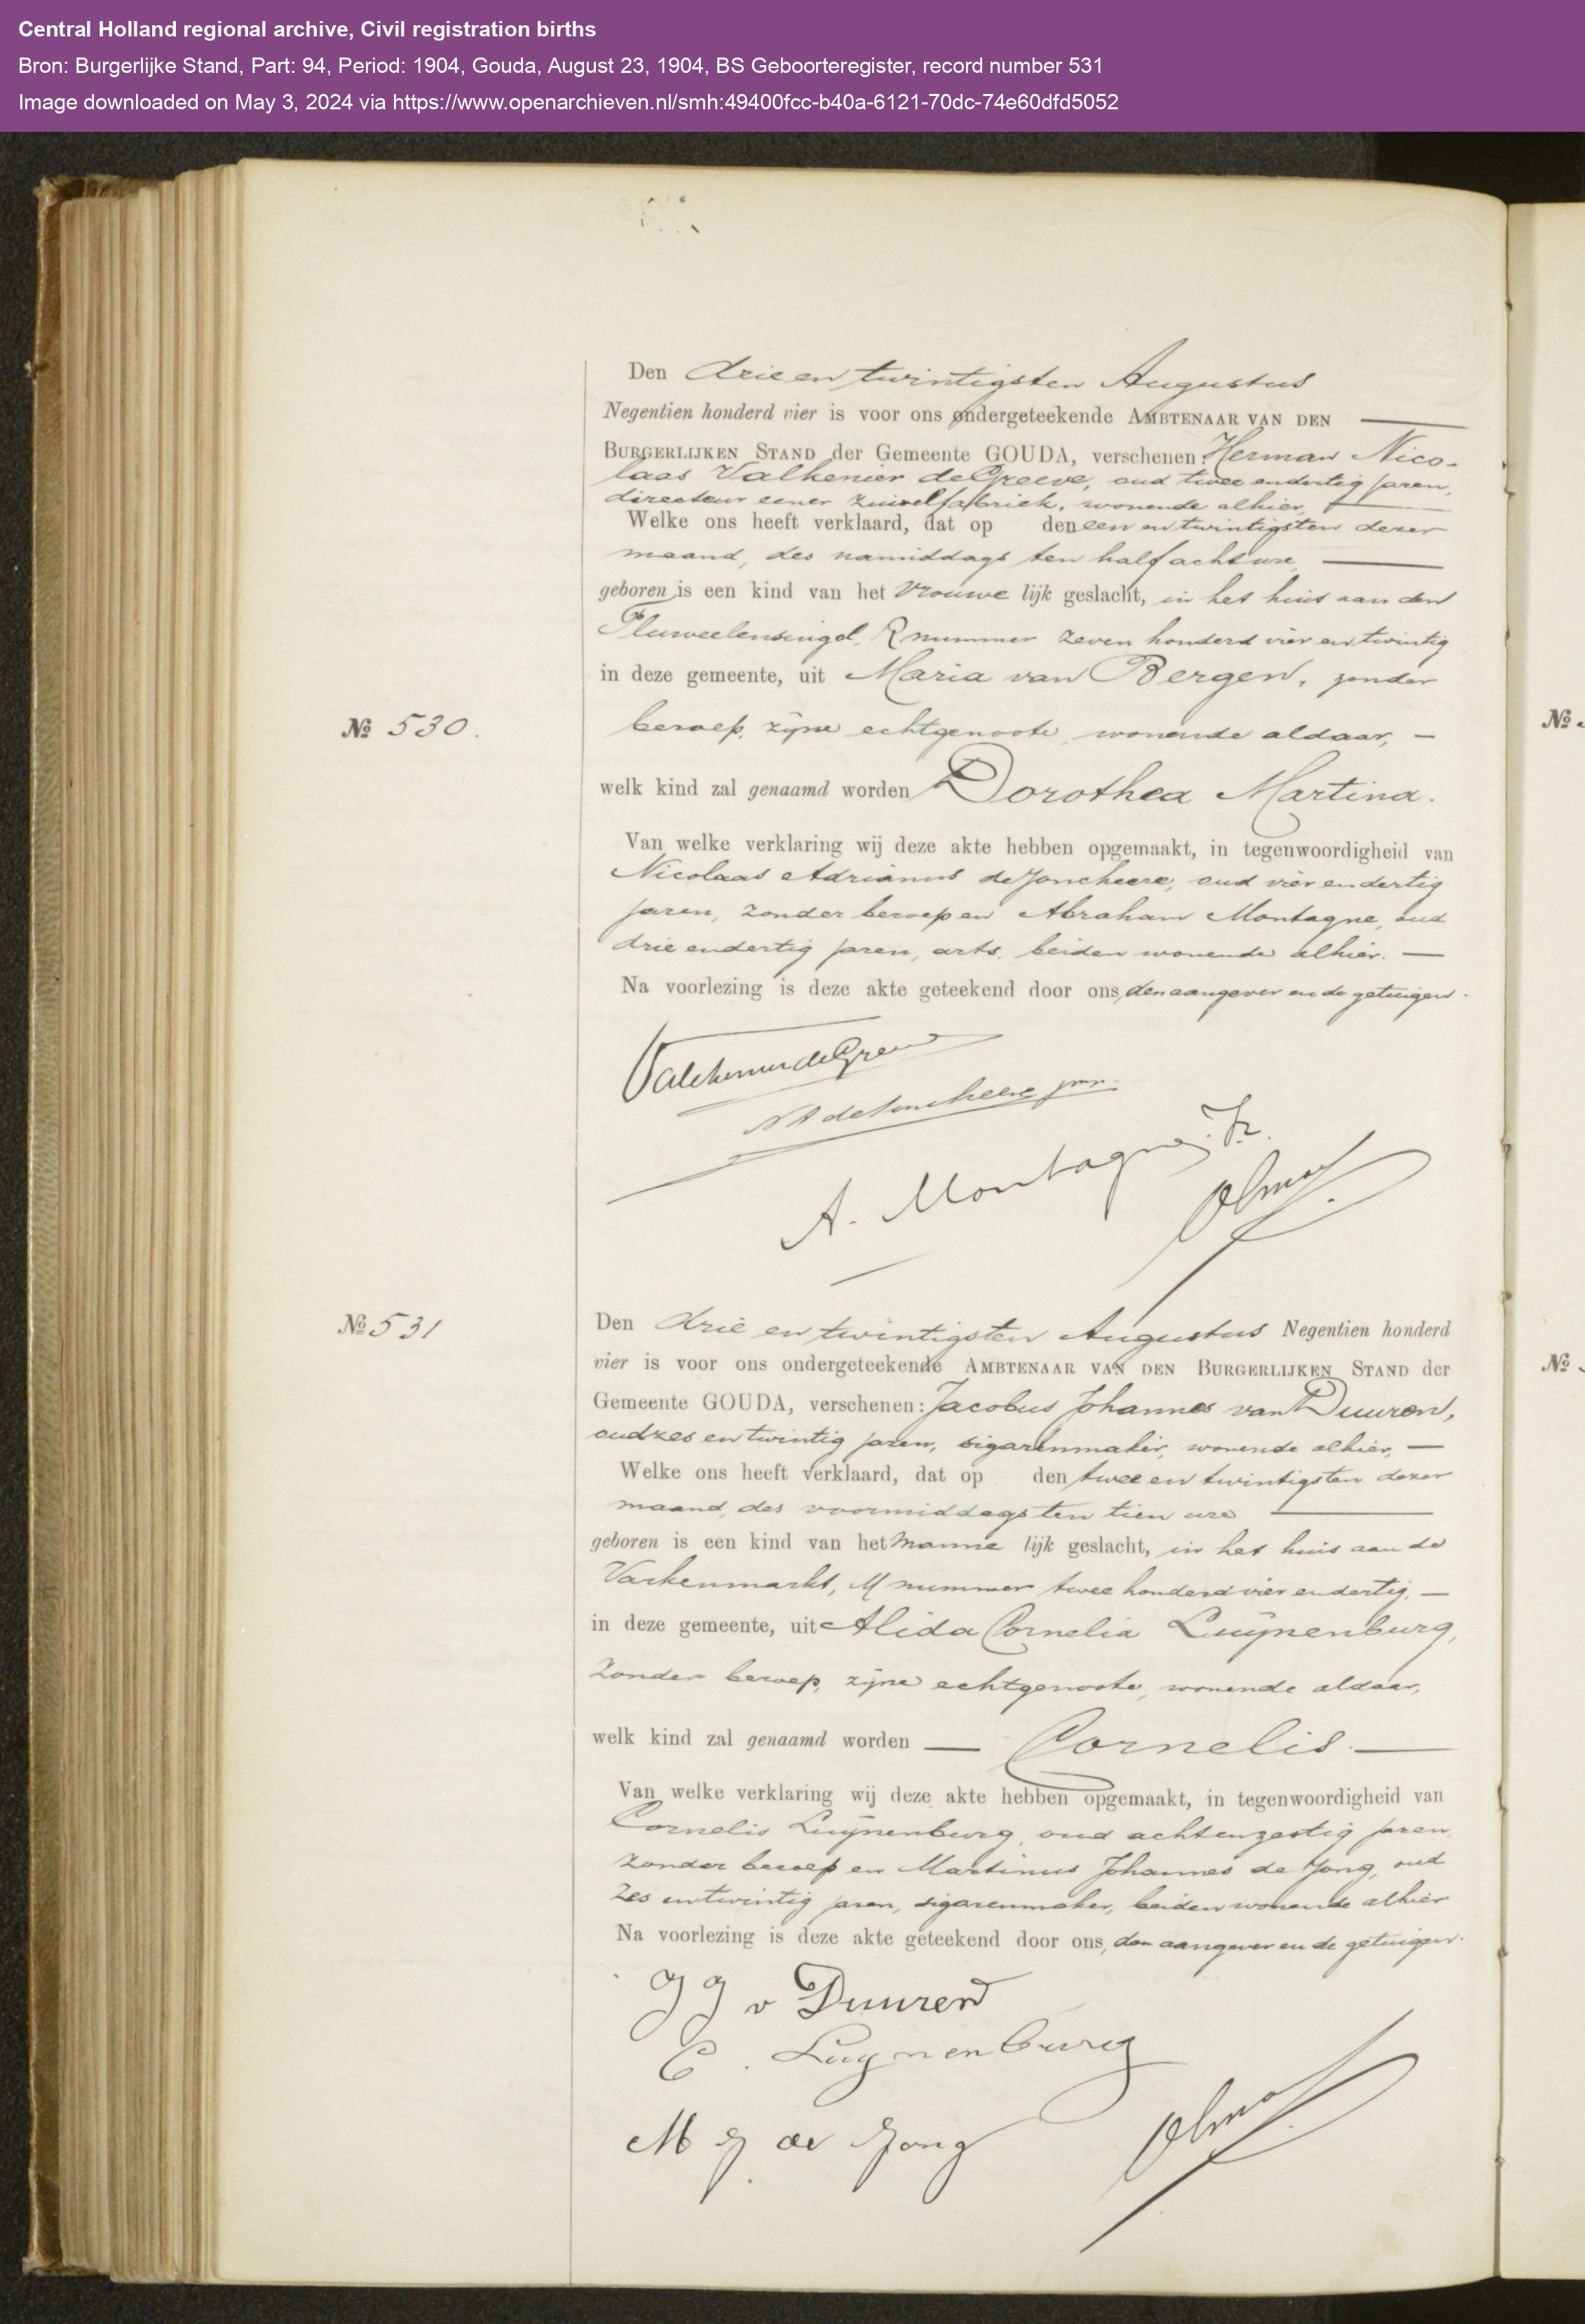 Central Holland regional archive, Civil registration births
Bron: Burgerlijke Stand, Part: 94, Period: 1904, Gouda, August 23, 1904, BS Geboorteregister, record number 531
Image downloaded on May 3, 2024 via https://www.openarchieven.nl/smh:49400fcc-b40a-6121-70dc-74e60dfd5052
Den drie en twintigsten Augustus
Negentien honderd vier is voor ons ondergeteekende AMBTENAAR VAN DEN
BURGERLIJKEN STAND der Gemeente GOUDA, verschenen: Herman Nico-
laas Valkenier de Greeve, oud twee endertig jaren,
directeur eener zuivelfabriek, wonende alhier,
Welke ons heeft verklaard, dat op den een en twintigsten dezer
maand, des namiddags ten half acht ure,
geboren is een kind van het vrouwe lijk geslacht, in het huis aan den
Fluweelensingel, R nummer zeven honderd vier en twintig
in deze gemeente, uit Maria van Bergen, zonder
No 530.
beroep, zijne echtgenoote, wonende aldaar, —
welk kind zal genaamd worden Dorothea Martina.
Van welke verklaring wij deze akte hebben opgemaakt, in tegenwoordigheid van
Nicolaas Adrianus de Joncheere, oud vier endertig
jaren, zonder beroep en Abraham Montagne, oud
drie endertig jaren, arts, beiden wonende alhier. —
Na voorlezing is deze akte geteekend door ons, den aangever en de getuigen.
Valckenier de Greeve
N A de Joncheere jnr.
A. Montagne Jr.
No 531
Den drie en twintigsten Augustus Negentien honderd
vier is voor ons ondergeteekende AMBTENAAR VAN DEN BURGERLIJKEN STAND der
Gemeente GOUDA, verschenen: Jacobus Johannes van Duuren,
oud zes en twintig jaren, sigarenmaker, wonende alhier, —
Welke ons heeft verklaard, dat op den twee en twintigsten dezer
maand, des voormiddags ten tien ure
geboren is een kind van het manne lijk geslacht, in het huis aan de
Varkenmarkt, M nummer twee honderd vier endertig, —
in deze gemeente, uit Alida Cornelia Luijnenburg,
zonder beroep, zijne echtgenoote, wonende aldaar,
welk kind zal genaamd worden — Cornelis. —
Van welke verklaring wij deze akte hebben opgemaakt, in tegenwoordigheid van
Cornelis Luijnenburg, oud achtenzestig jaren,
zonder beroep en Martinus Johannes de Jong, oud
zes entwintig jaren, sigarenmaker, beiden wonende alhier
Na voorlezing is deze akte geteekend door ons, den aangever en de getuigen.
J J v Duuren
C. Luynenburg
M J de Jong
No
No